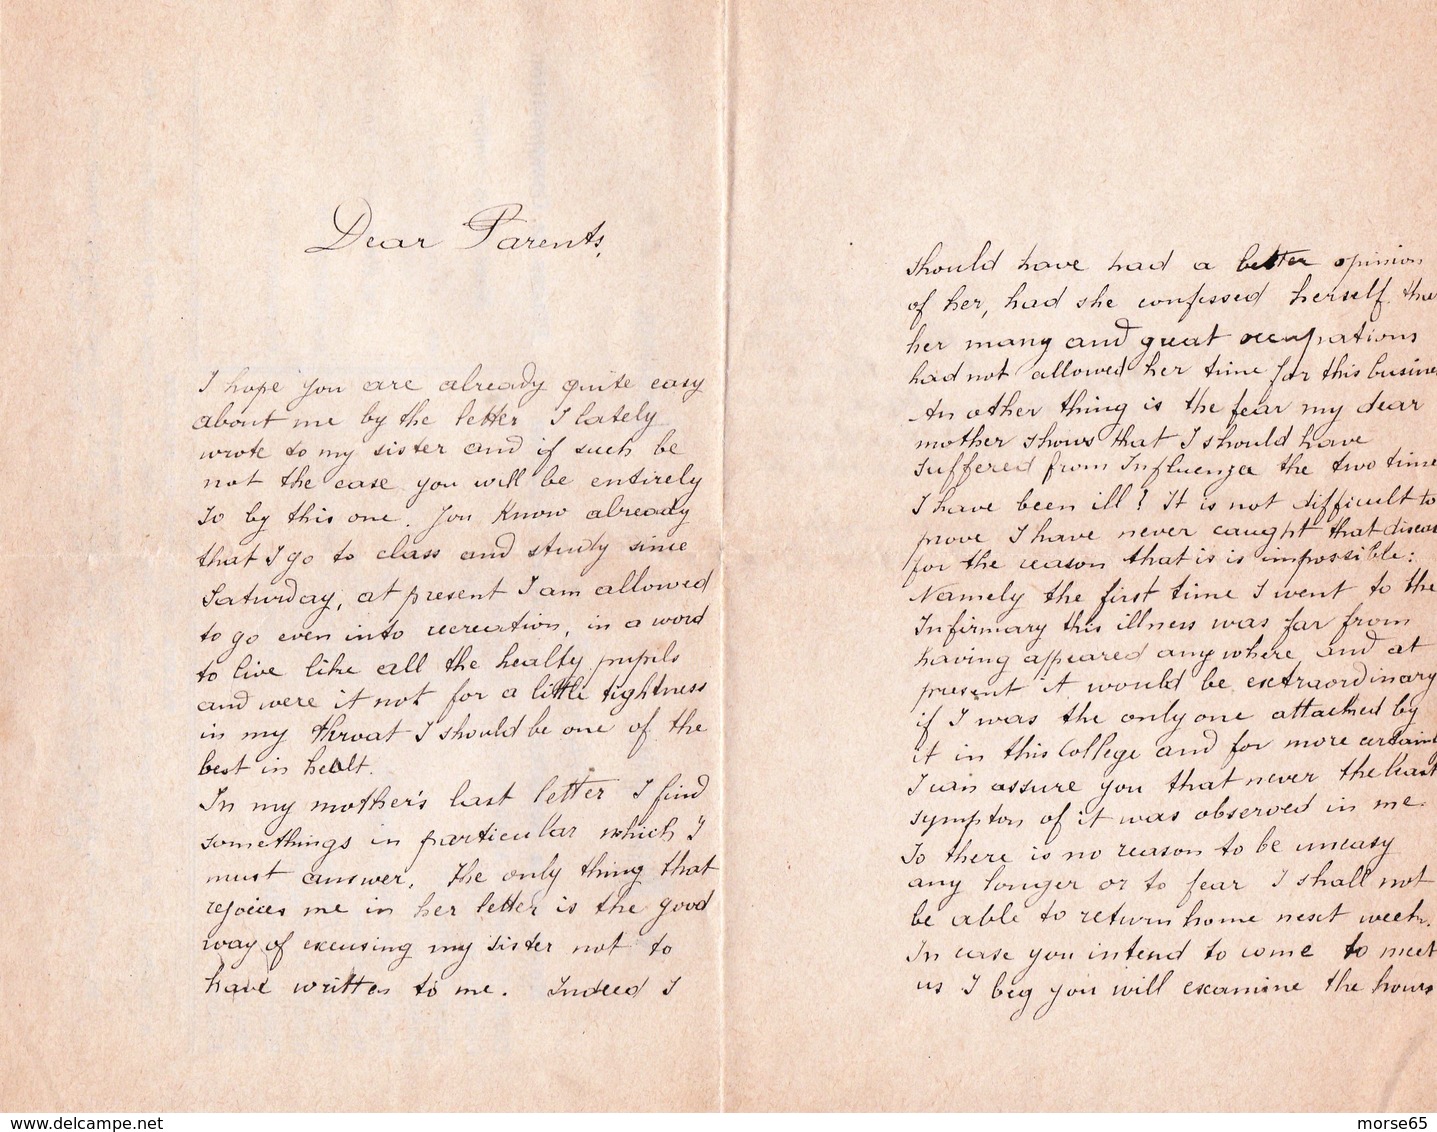 Dear Parents,
I hope you are already quite easy
about me by the letter I lately
wrote to my sister and if such be
not the case you will be entirely
so by this one. You know already
that I go to class and study since
Saturday, at present I am allowed
to go even into recreation, in a word
to live like all the healty pupils
and were it not for a little tightness
in my throat I should be one of the
best in healt.
In my mother's last letter I find
somethings in particular which I
must answer. The only thing that
rejoices me in her letter is the good
way of excusing my sister not to
have written to me. Indeed I
should have had a better opinion
of her, had she confessed herself
her many and great occupations
had not allowed her time for this
An other thing is the fear my dear
mother shows that I should have
suffered from Influenza the two time
I have been ill! It is not difficult to
prove I have never caught that
for the reason that is is impossible:
Namely the first time I went to the
Infirmary this illness was far from
having appeared any where and at
present it would be extraordinary
if I was the only one attached by
it in this College and for more
I can assure you that never the least
sympton of it was observed in me.
So there is no reason to be uneasy
any longer or to fear I shall not
be able to return home next week.
In case you intend to come to meet
us I beg you will examine the hours
delcampe.net
morse65